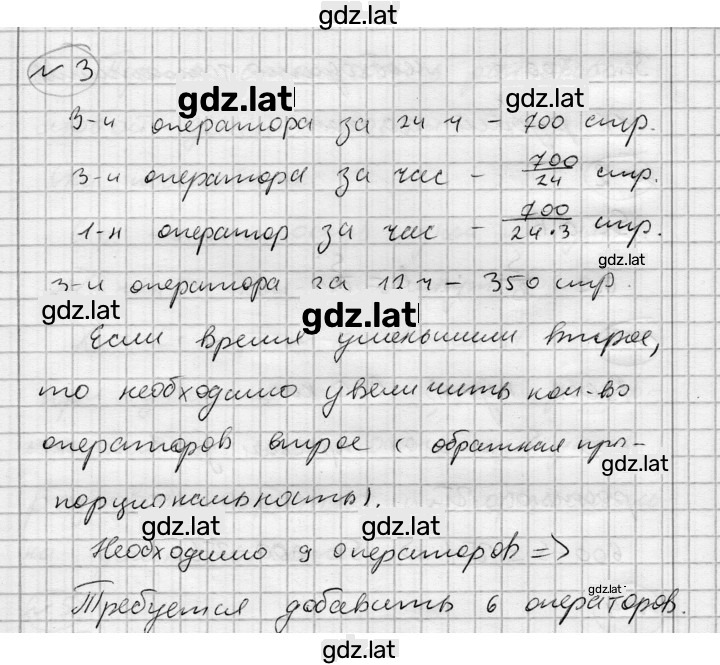 gdz.lat
№ 3
gdz.lat gdz.lat
3-и оператора за 24 ч - 700 стр.
3-и оператора за час - 700/24 стр.
1-н оператор за час - 700/24·3 стр.
gdz.lat
3-и оператора за 12 ч - 350 стр.
gdz.lat gdz.lat
Если время уменьшили втрое,
то необходимо увеличить кол-во
операторов втрое (обратная про-
gdz.lat
порциональность).
gdz.lat gdz.lat
Необходимо 9 операторов =>
gdz.lat
Требуется добавить 6 операторов.
gdz.lat